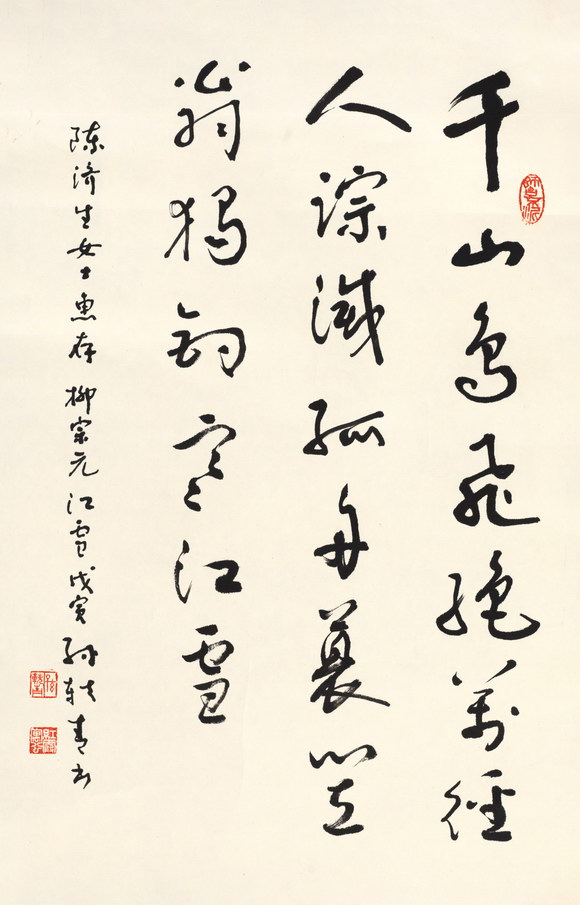 千山鳥飛絕萬徑
人踪滅孤舟蓑笠
翁獨釣寒江雪
陳濟生女士惠存 柳宗元江雪戊寅孫軼青書